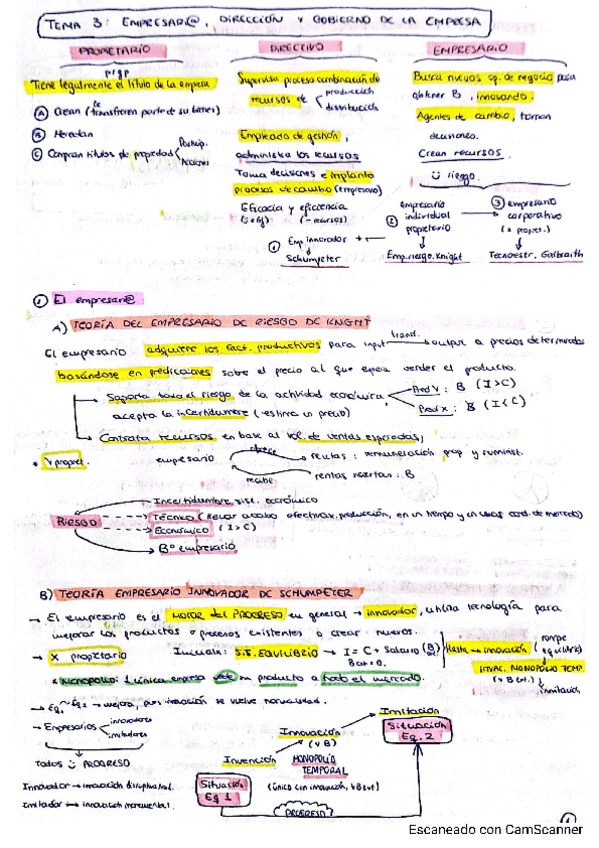 TEMA 3: EMPRESARI@, DIRECCIÓN Y GOBIERNO DE LA EMPRESA
PROPIETARIO
DIRECTIVO
EMPRESARIO
Tiene legalmente el título de la empresa
Ⓐ Crean (le transfieren parte de su bienes)
Ⓑ Heredan
Ⓒ Compran títulos de propiedad
Particip.
Acciones
Supervisa proceso combinación de
recursos de
producción
distribución
Empleado de gestión,
administra los recursos
Toma decisiones e implanta
procesos de cambio (empresario)
Eficacia y eficiencia
(- recursos)
① Emp. innovador
Schumpeter
Busca nuevas op. de negocio para
obtener B, innovando.
Agentes de cambio, toman
decisiones.
Crean recursos.
riesgo.
② empresario
individual
propietario
Emp. riesgo. Knight
③ empresario
corporativo
(x propiet.)
Tecnoestr. Galbraith
① El empresari@
A) TEORÍA DEL EMPRESARIO DE RIESGO DE KNIGHT
El empresario adquiere los fact. productivos para input transf. output a precios determinados
basándose en predicciones sobre el precio al que espera vender el producto.
Soporta todo el riesgo de la actividad económica,
acepta la incertidumbre (estima un precio)
Prod Y: B (I>C)
Prod X: B (I<C)
Contrata recursos en base al vol. de ventas esperadas,
* v propiet.
empresario
ofrece
recibe
rentas: remuneración prop y suminist.
rentas inciertas: B
Riesgo
Incertidumbre sist. económico
Técnico (llevar a cabo efectivam. producción, en un tiempo y en unas cond. de mercado)
Económico (I>C)
Bº empresario
B) TEORÍA EMPRESARIO INNOVADOR DE SCHUMPETER
→ El empresario es el MOTOR del PROGRESO en general → innovador, utiliza tecnología para
mejorar los productos o procesos existentes o crear nuevos.
→ X propietario
Inicial: S.E. EQUILIBRIO → I = C + Salario
B ext = 0.
Hasta → innovación
rompe
equilibrio
SITUAC. MONOPOLIO TEMP.
(v B ext.)
imitación
* MONOPOLIO: 1 única empresa vende su producto a todo el mercado.
→ Eq₁ ~ Eq₂ → mejora, pues innovación se vuelve normalidad.
→ Empresarios
innovadores
imitadores
Todos PROGRESO
Innovador → innovación disruptiva/rad.
Imitador → innovación incremental.
Invención
Innovación
(v B)
MONOPOLIO
TEMPORAL
(único con innovación, v B ext)
Imitación
Situación
Eq. 1
Situación
Eq. 2
PROGRESO
Escaneado con CamScanner